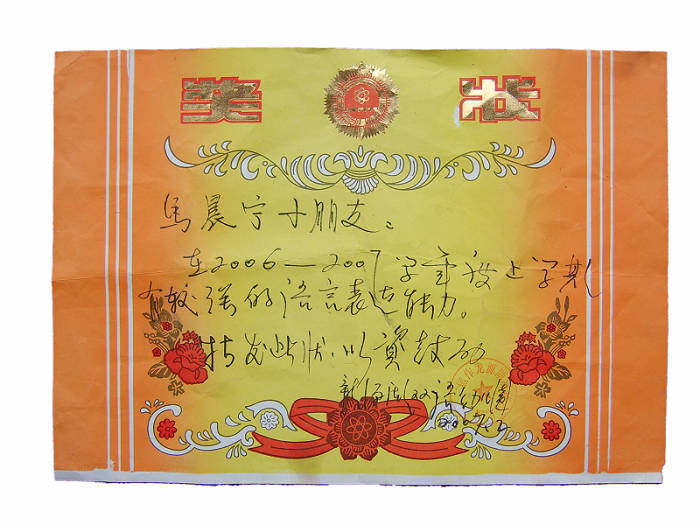 奖状
马晨宁小朋友：
在2006—2007学年段上学期
有较强的语言表达能力。
特发此状.以资鼓励
双语幼儿园